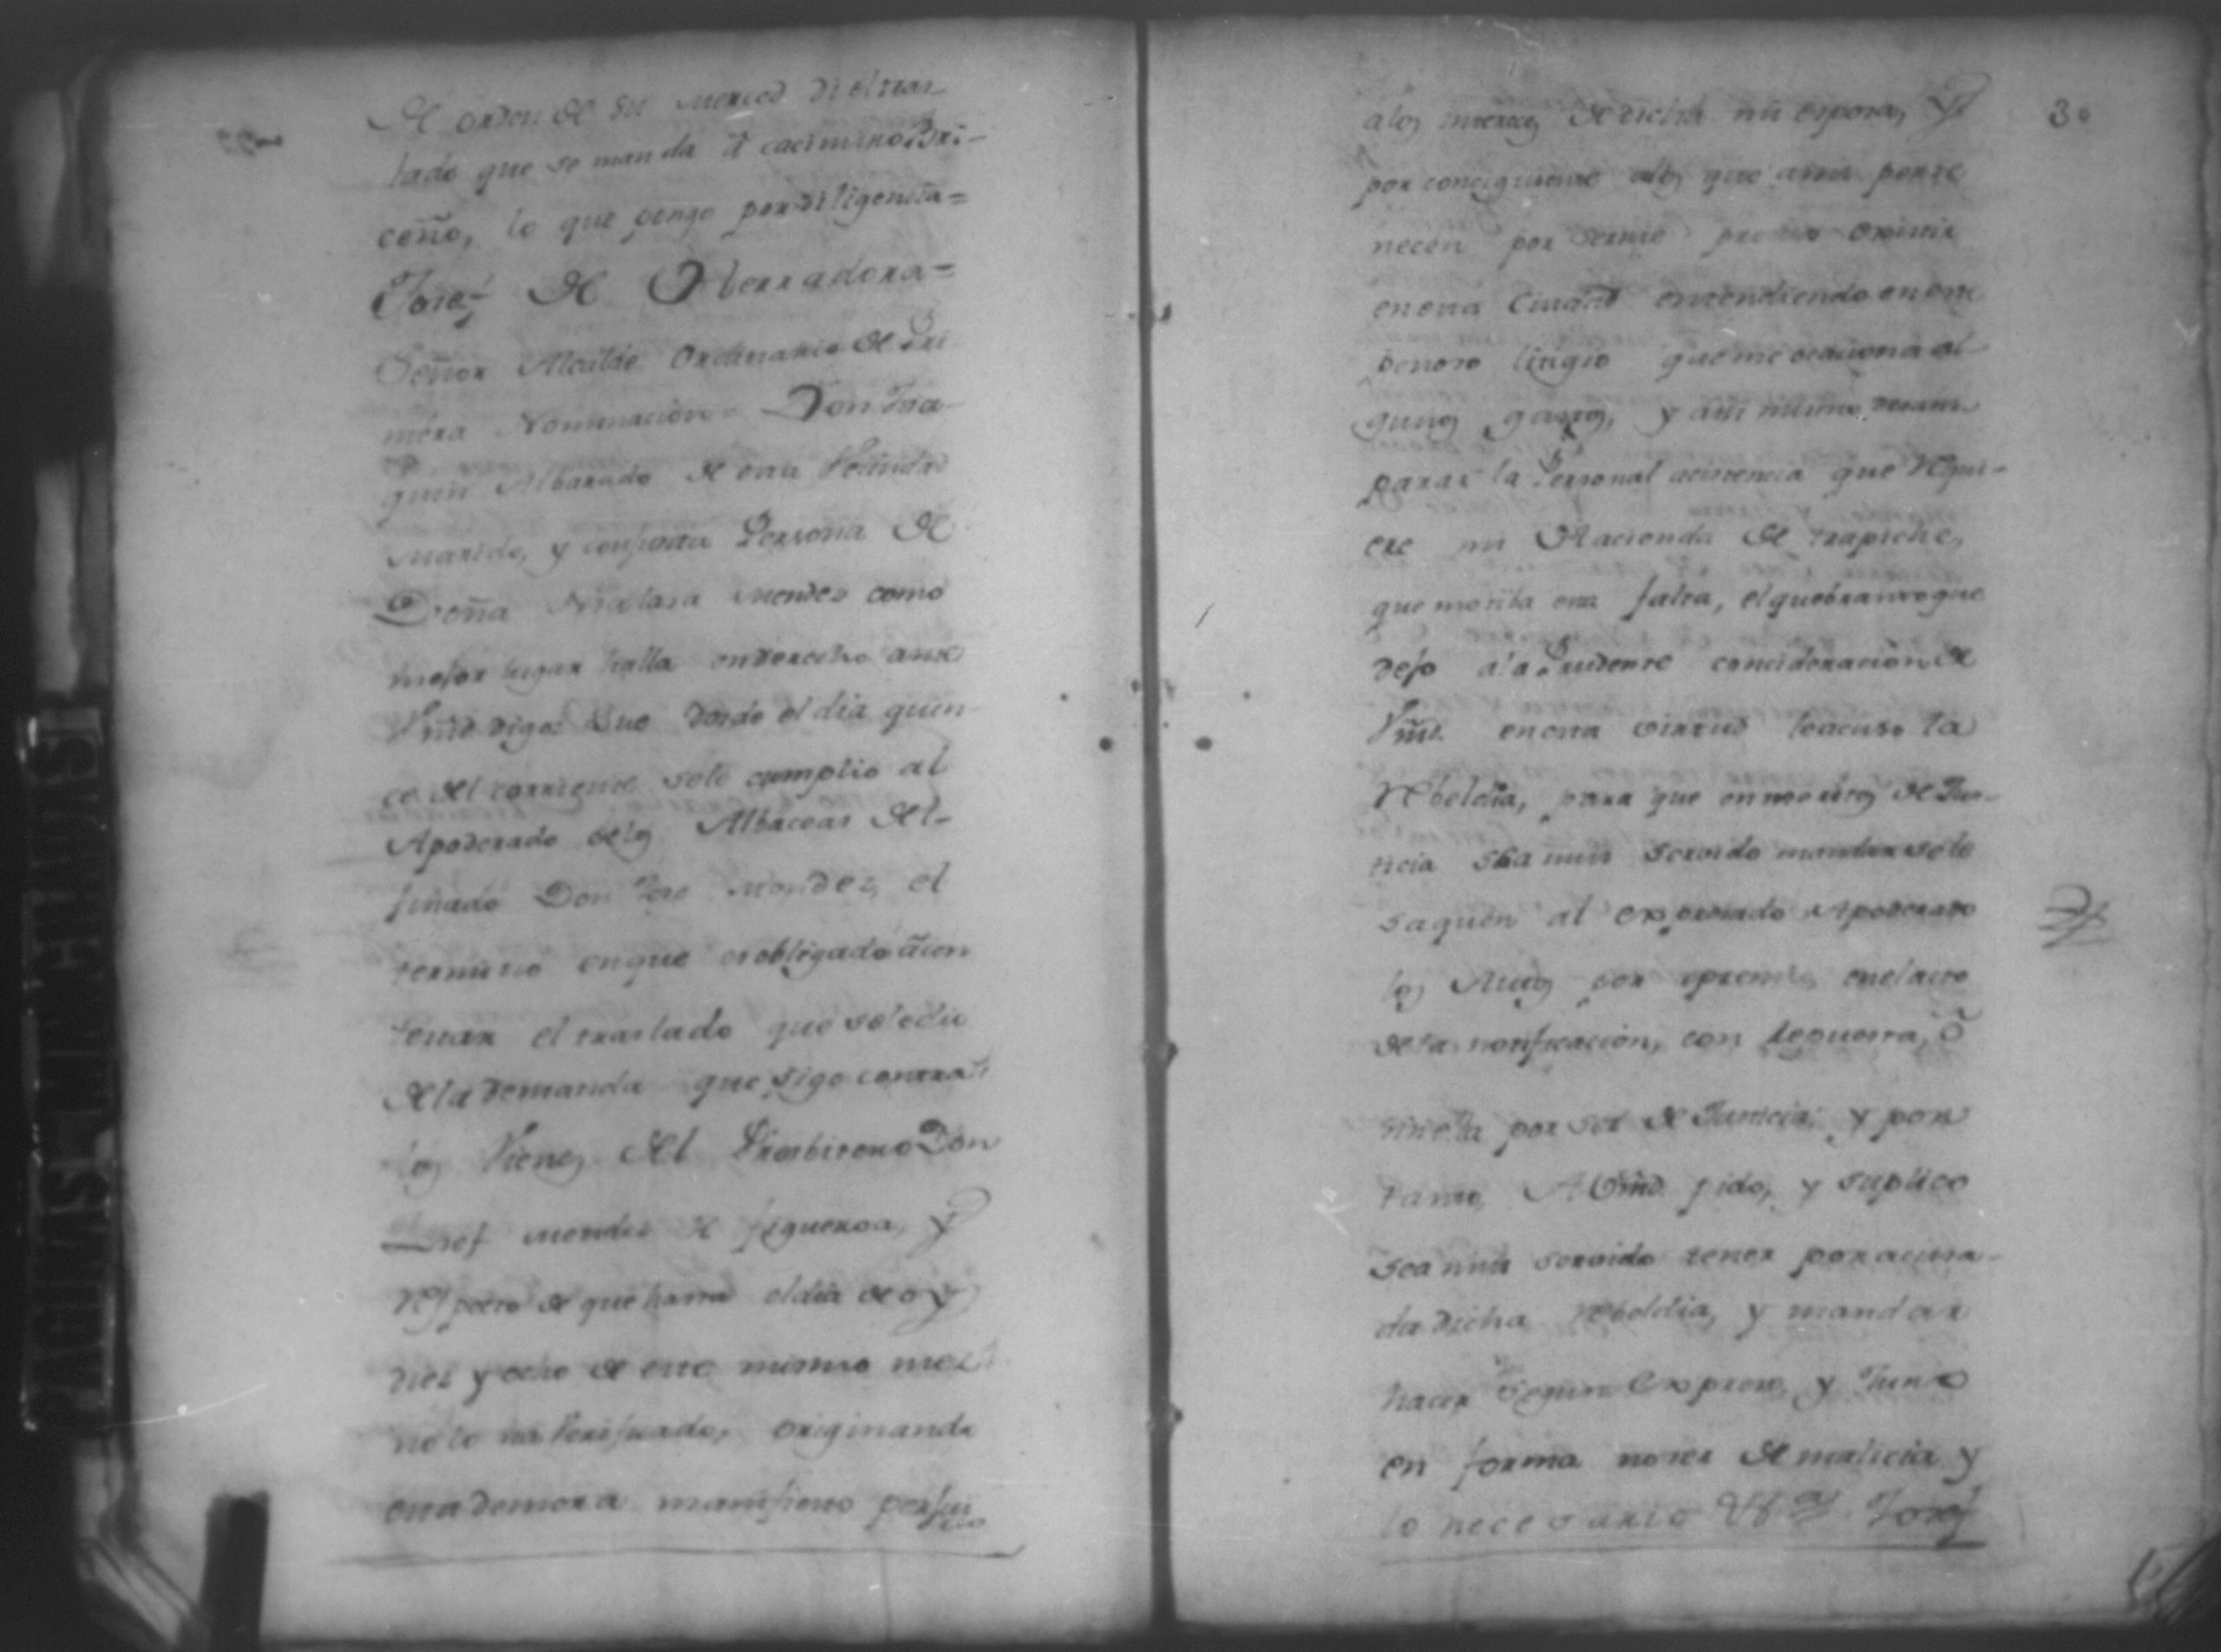 De orden de su merced di el tras-
lado que se manda â cacimiro Bri-
ceño, lo que pongo por diligencia=
Josef de Oberradora=
Señor Alcalde Ordinario de Pri
mera Nominacion= Don Joa-
quin Albarado de esta Vecindad
Marido, y conjunta Persona de
Doña Nicolasa Mendes como
mejor lugar halla en derecho ante
Vmd digo: Que desde el dia quin-
ce del corriente sele cumplio al
Apoderado delos Albaceas del-
finado Don Jose Mendez, el
termino enque es obligado âcon
testar el traslado que seledio
dela demanda que sigo contra
los Vienes del Presbitero Don
Josef Mendes de figueroa, y
respecto de que hasta eldia de oy
dies y ocho de este mismo mez
nolo ha Verificado, originando
esta demora manifiesto perjui
cio
alos intereses de dicha mi esposa, y 30
por consiguiente alos que ami perte
necen por serme preciso existir
en esta Ciudad entendiendo en este
penoso litigio que me ocasiona al-
gunos gastos, y asi mismo desam-
parar la Personal acistencia que requi-
ere mi Hacienda de trapiche,
que motiba esta falta, el quebranto que
dejo ala Prudente concideracion de
Vmd. en esta virtud leacuso la
Rebeldia, para que en meritos de Jus-
ticia sea mui servido mandar sele
saquen al expresado Apoderado
los Autos por apremio enelacto
dela notificacion, con respuesta, õ
sin ella por ser de Justicia; y por
tanto, A Vmd. pido, y suplico
sea mui servido tener por acusa-
da dicha rebeldia, y mandar
hacer segun Expreso, y Juro
en forma noser de malicia y
lo necesario Vt Sa. Josef